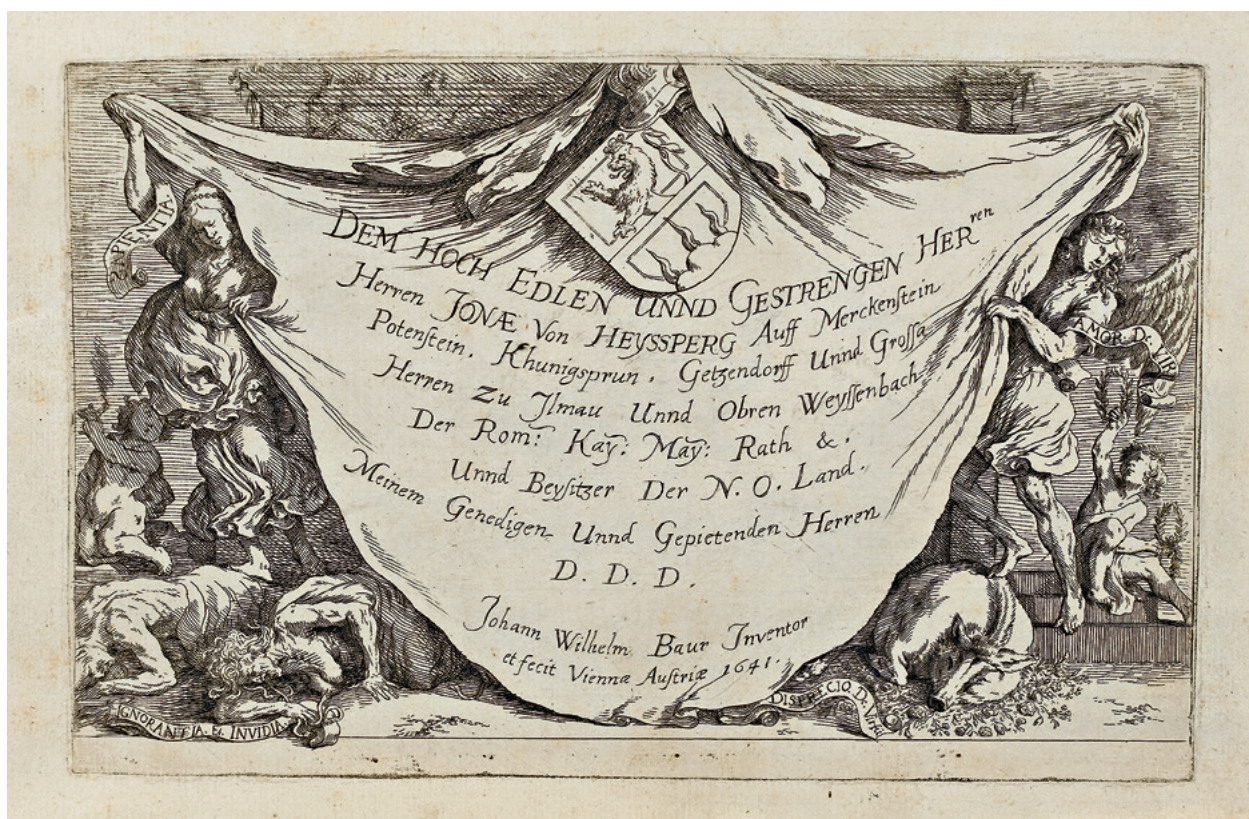 SAPIENTIA
DEM HOCH EDLEN UNND GESTRENGEN HERren
Herren JONÆ Von HEYSSPERG Auff Merckenstein
Potenstein, Khunigsprun, Getzendorff Unnd Grossa
Herren Zu Jlmau Unnd Obren Weyssenbach
Der Rom: Kaÿ: Maÿ: Rath &.
Unnd Beysitzer Der N. O. Land.
Meinem Genedigen Unnd Gepietenden Herren
D. D. D.
Johann Wilhelm Baur Inventor
et fecit Viennæ Austriæ 1641.
AMOR. D. VIR
IGNORANTIA. Et. INVIDIA
DISPRECIO. D. Virtu